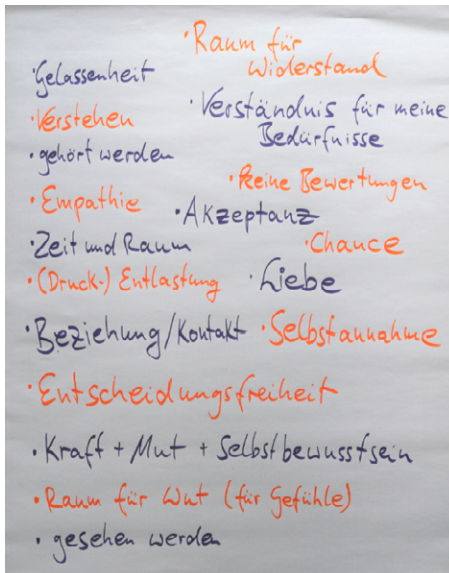 · Raum für
Widerstand
· Gelassenheit
· Verstehen
· Verständnis für meine
Bedürfnisse
· gehört werden
· keine Bewertungen
· Empathie
· Akzeptanz
· Zeit und Raum
· Chance
· (Druck-) Entlastung
· Liebe
· Beziehung/Kontakt
· Selbstannahme
· Entscheidungsfreiheit
· Kraft + Mut + Selbstbewusstsein
· Raum für Wut (für Gefühle)
· gesehen werden